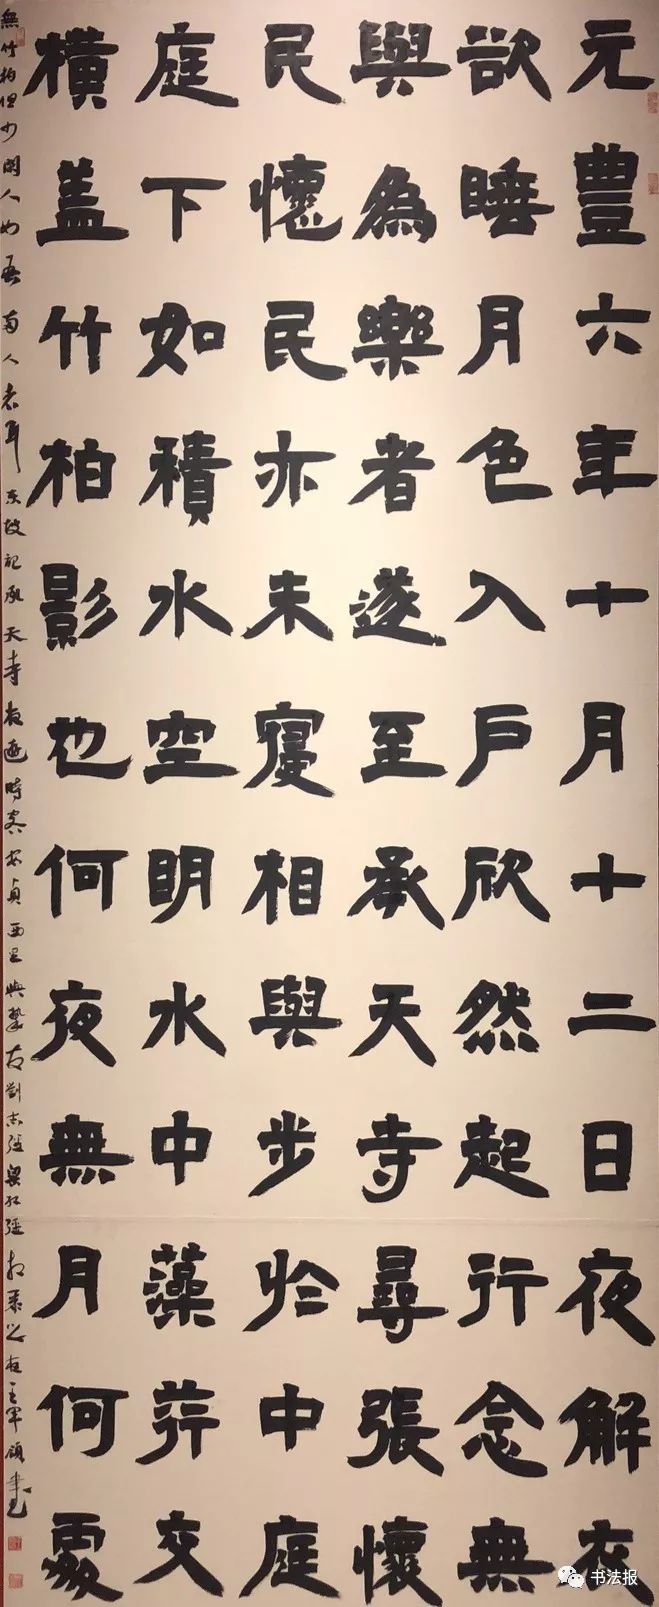 元豐六年十月十二日夜解衣
欲睡月色入戶欣然起行念無
與為樂者遂至承天寺尋張懷
民懷民亦未寢相與步於中庭
庭下如積水空明水中藻荇交
橫盖竹柏影也何夜無月何處
無竹柏但少閑人如吾兩人者耳東坡記承天寺夜遊時客安貞西里與摯友劉志強梁紅強相聚之夜王軍領書
书法报